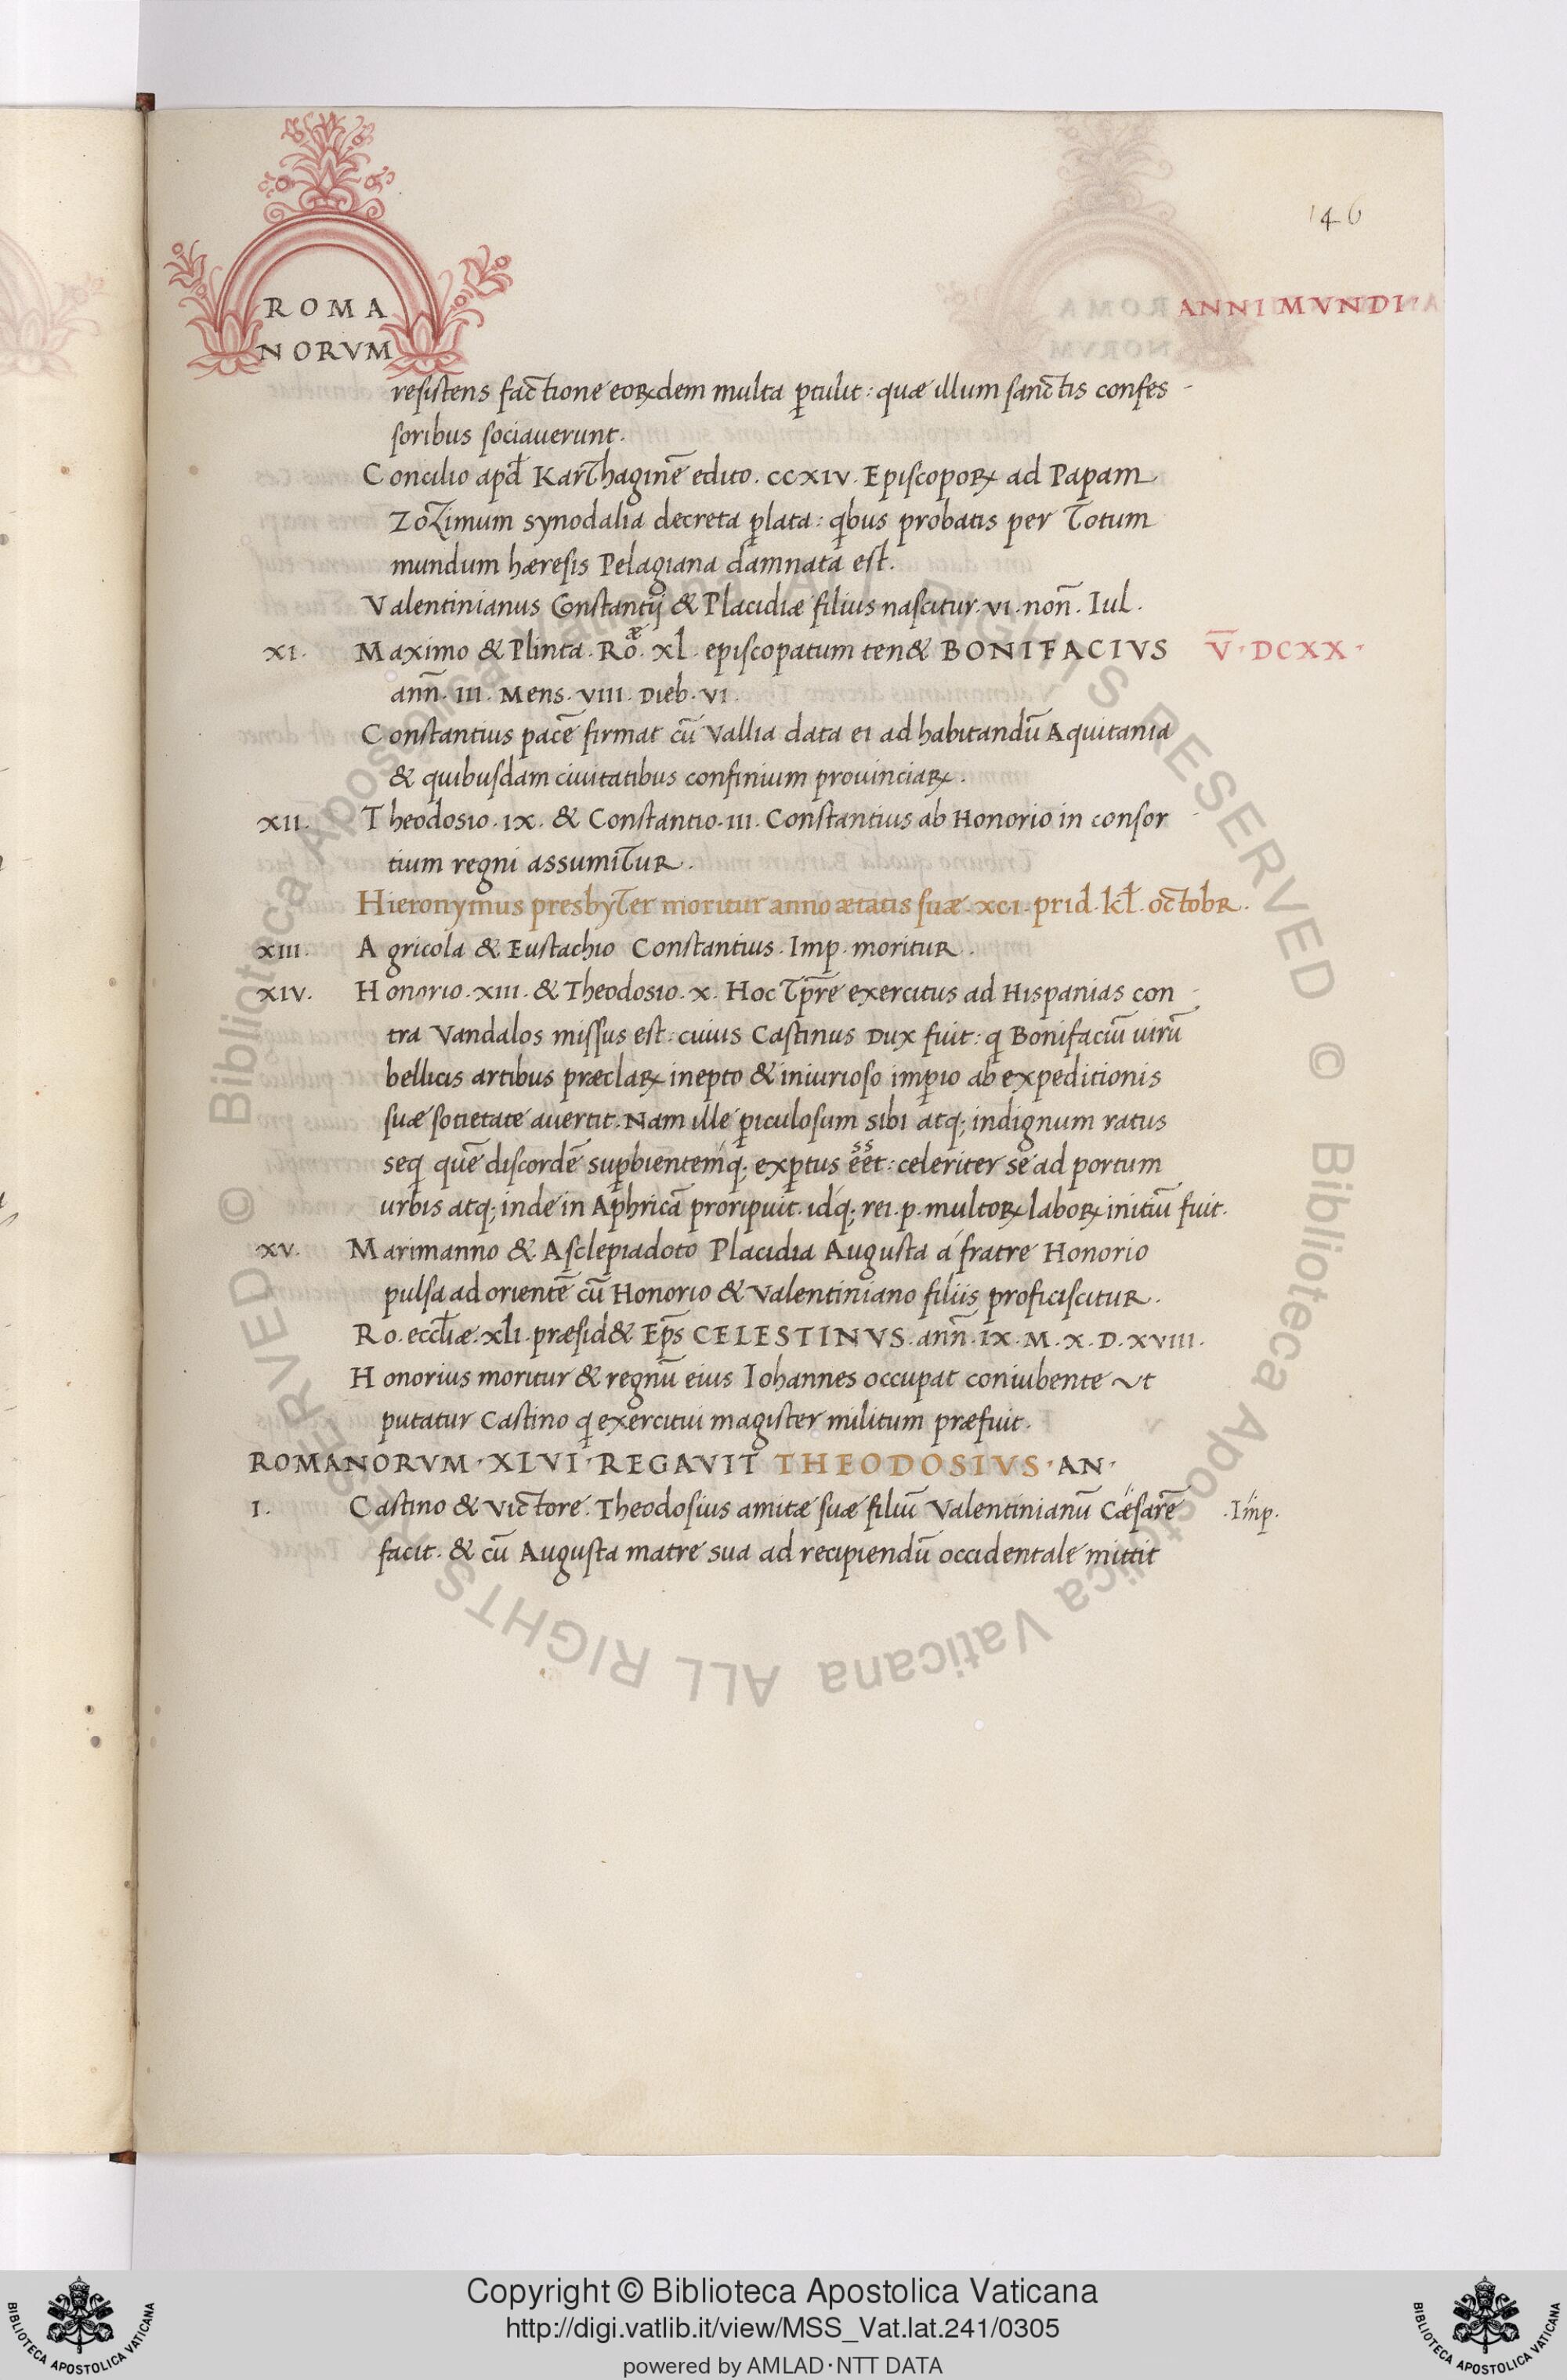 146
ROMA
NORVM
ANNI MVNDI
resistens factione eoꝝdem multa ꝑtulit: quæ illum sanctis confes-
soribus sociauerunt.
Concilio apd̄ Karthaginē edito. CCXIV. Episcopoꝝ ad Papam
Zozimum synodalia decreta ꝑlata: qbus probatis per totum
mundum hæresis Pelagiana damnata est.
Valentinianus Constantij & Placidiæ filius nascitur. VI. non̄. Iul.
XI. Maximo & Plinta. Ro. æ xl. episcopatum ten& BONIFACIVS V̄·DCXX·
ann̄. III. Mens. VIII. Dieb. VI.
Constantius pacē firmat cū Vallia data ei ad habitandū Aquitania
& quibusdam ciuitatibus confinium prouinciaꝝ.
XII. Theodosio. IX. & Constantio. III. Constantius ab Honorio in consor-
tium regni assumitur.
Hieronymus presbyter moritur anno ætatis suæ. XCI. prid. kl̄. octobr.
XIII. Agricola & Eustachio Constantius. Imp. moritur.
XIV. Honorio. XIII. & Theodosio. X. Hoc tp̄re exercitus ad Hispanias con-
tra Vandalos missus est: cuius Castinus Dux fuit: q Bonifaciū uirū
bellicis artibus præclaꝝ inepto & iniurioso imꝑio ab expeditionis
suæ societate auertit. Nam ille ꝑiculosum sibi atq; indignum ratus
seq quē discordē suꝑbientemq; exꝑtus ēēt: celeriter se ad portum
urbis atq; inde in Aphricā proripuit. idq; rei. p. multoꝝ laboꝝ initiū fuit.
XV. Marimanno & Asclepiadoto Placidia Augusta á fratre Honorio
pulsa ad orientē cū Honorio & Valentiniano filiis proficiscitur.
Ro. eccl̄iæ. xli. præsid& Ep̄s CELESTINVS. ann̄. IX. M. X. D. XVIII.
Honorius moritur & regnū eius Iohannes occupat coniubente vt
putatur Castino q exercitui magister militum præfuit.
ROMANORVM·XLVI·REGAVIT THEODOSIVS·AN·
I. Castino & Victore. Theodosius amitæ suæ filiū Valentinianū Cæsarē .Imp.
facit. & cū Augusta matre sua ad recipiendū occidentale mittit
© Biblioteca Apostolica Vaticana ALL RIGHTS RESERVED © Biblioteca Apostolica Vaticana ALL RIGHTS RESERVED
Copyright © Biblioteca Apostolica Vaticana
http://digi.vatlib.it/view/MSS_Vat.lat.241/0305
powered by AMLAD·NTT DATA
BIBLIOTECA APOSTOLICA VATICANA
BIBLIOTECA APOSTOLICA VATICANA